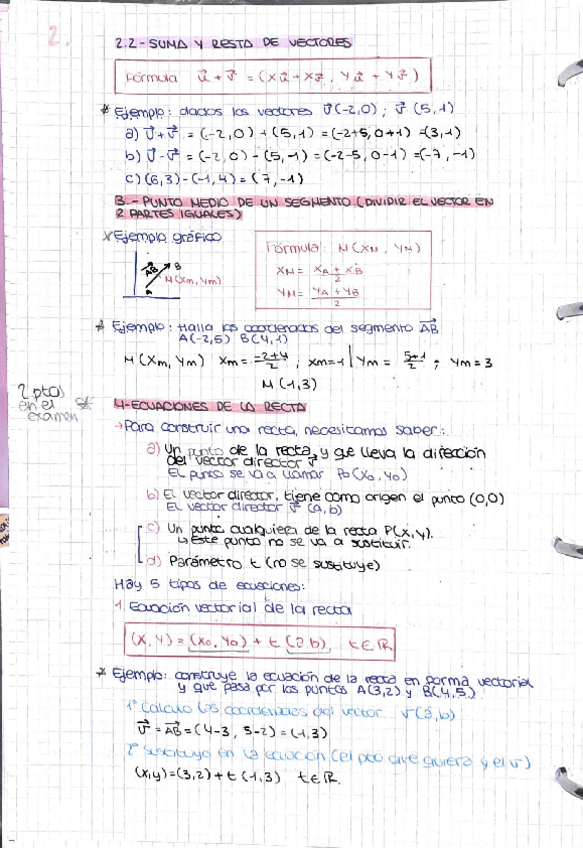 2.
2.2-SUMA Y RESTA DE VECTORES
Fórmula u⃗ + v⃗ = (Xu⃗ + Xv⃗, Yu⃗ + Yv⃗)
* Ejemplo: dados los vectores v⃗(-2,0) ; v⃗ (5,1)
a) v⃗+v⃗ = (-2,0) + (5,1) = (-2+5, 0+1) =(3,1)
b) v⃗-v⃗ = (-2,0) - (5,-1) = (-2-5, 0-1) =(-7,-1)
c) (6,3)-(-1,4) = (7,-1)
3.- PUNTO MEDIO DE UN SEGMENTO (DIVIDIR EL VECTOR EN
2 PARTES IGUALES)
* Ejemplo gráfico
AB B
M(Xm, Ym)
A
Fórmula: M (XM, YM)
XM = XA + XB / 2
YM = YA + YB / 2
* Ejemplo: Halla las coordenadas del segmento AB⃗
A(-2,5) B(4,1)
M (Xm, Ym) Xm = -2+4/2 ; Xm=1 | Ym = 5+1/2 ; Ym = 3
M (1,3)
2 ptos
en el
examen
*
4-ECUACIONES DE LA RECTA
→Para construir una recta, necesitamos saber:
a) Un punto de la recta, y que lleva la dirección
del vector director v⃗
El punto se va a llamar P0 (X0, Y0)
b) El vector director, tiene como origen el punto (0,0)
El vector director v⃗ (a,b)
c) Un punto cualquiera de la recta P(X,Y).
↳ este punto no se va a sustituir.
d) Parámetro t (no se sustituye)
Hay 5 tipos de ecuaciones:
1. Ecuación vectorial de la recta
(X,Y) = (X0,Y0) + t (a,b) t∈ℝ
* Ejemplo: construye la ecuación de la recta en forma vectorial
y que pasa por los puntos A(3,2) y B(4,5)
1º Calculo las coordenadas del vector v⃗(a,b)
v⃗ = AB⃗ = (4-3, 5-2) = (1,3)
2º sustituyo en la ecuación (el pto que quiera y el v⃗)
(x,y)=(3,2)+t (1,3) t∈ℝ.